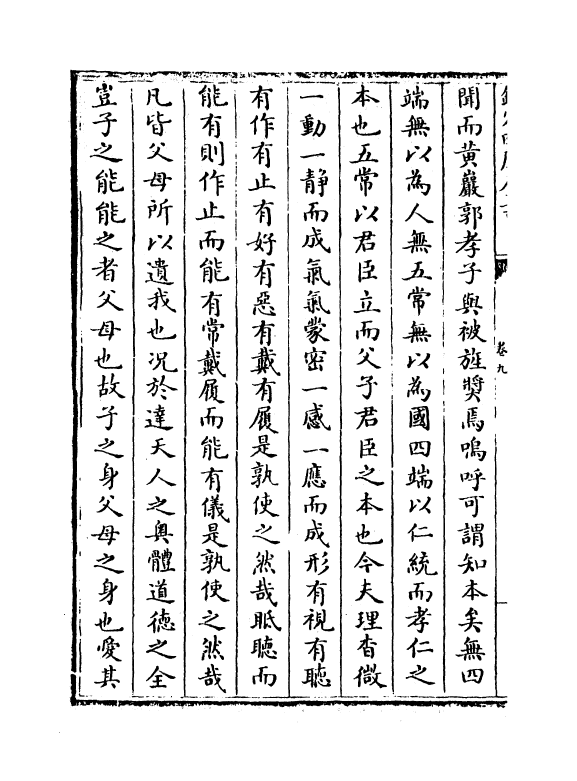 卷九
聞而黃巖郭孝子與被旌奬焉嗚呼可謂知本矣無四
端無以為人無五常無以為國四端以仁統而孝仁之
本也五常以君臣立而父子君臣之本也今夫理杳微
一動一靜而成氣氣蒙密一感一應而成形有視有聽
有作有止有好有惡有戴有履是孰使之然哉眡聽而
能有則作止而能有常戴履而能有儀是孰使之然哉
凡皆父母所以遺我也况於達天人之奥體道德之全
豈子之能能之者父母也故子之身父母之身也愛其